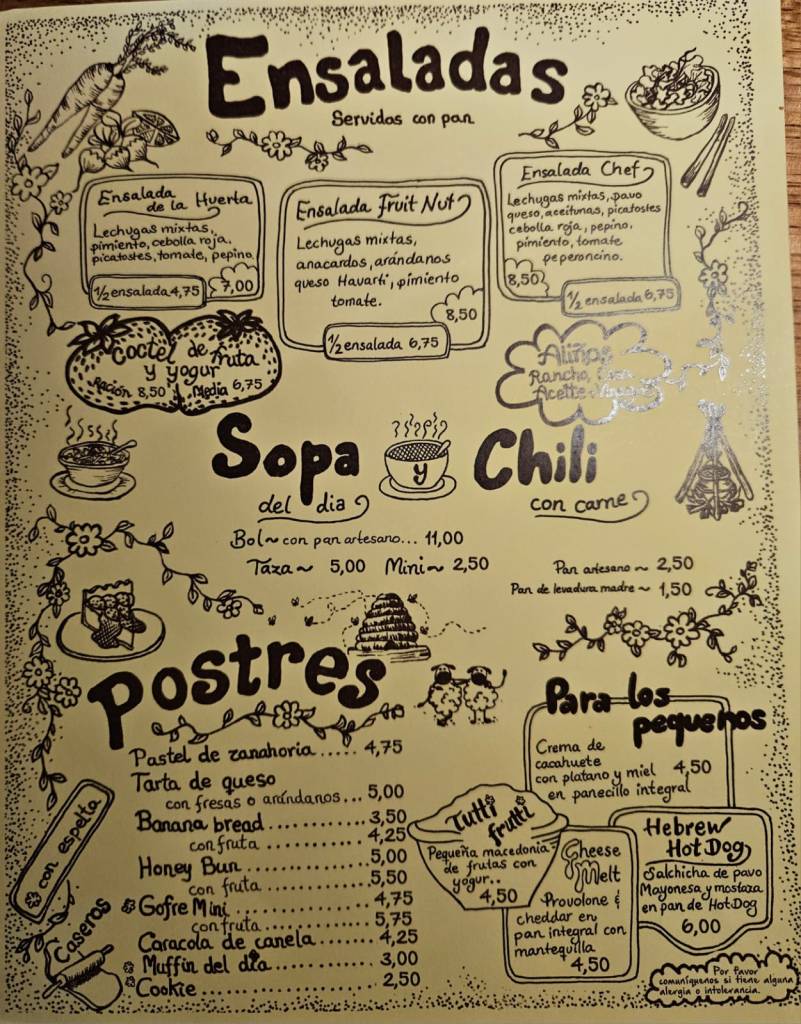 Ensaladas
Servidas con pan
Ensalada
de la Huerta
Lechugas mixtas,
pimiento, cebolla roja,
picatostes, tomate, pepino.
7,00
1/2 ensalada 4,75
Ensalada Fruit Nut
Lechugas mixtas,
anacardos, arándanos
queso Havarti, pimiento
tomate.
8,50
1/2 ensalada 6,75
Ensalada Chef
Lechugas mixtas, pavo
queso, aceitunas, picatostes
cebolla roja, pepino,
pimiento, tomate
peperoncino.
8,50
1/2 ensalada 6,75
Coctel de fruta
y yogur
Ración 8,50 Media 6,75
Aliños
Rancho,
Aceite
Sopa y Chili
del dia
con carne
Bol~ con pan artesano... 11,00
Taza~ 5,00 Mini~ 2,50
Pan artesano ~ 2,50
Pan de levadura madre ~ 1,50
Postres
Pastel de zanahoria..... 4,75
Tarta de queso
con fresas o arándanos... 5,00
Banana bread............ 3,50
con fruta............ 4,25
Honey Bun............ 5,00
con fruta............ 5,50
Gofre Mini............ 4,75
con fruta............ 5,75
Caracola de canela...... 4,25
Muffin del día............ 3,00
Cookie............ 2,50
con espelta
Caseros
Para los
pequeños
Crema de
cacahuete
con platano y miel 4,50
en panecillo integral
Tutti
frutti
Pequeña macedonia
de frutas con
yogur..
4,50
Cheese
Melt
Provolone &
cheddar en
pan integral con
mantequilla
4,50
Hebrew
Hot Dog
Salchicha de pavo
Mayonesa y mostaza
en pan de Hot Dog
6,00
Por favor
comuníquenos si tiene alguna
alergia o intolerancia.